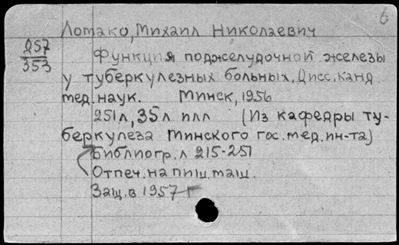 6
Ломако, Михаил Николаевич
257
353
Функция поджелудочной железы
у туберкулезных больных. Дисс. канд
мед. наук. Минск, 1956
251л, 35л илл (Из кафедры ту-
беркулеза Минского гос. мед. ин-та)
Библиогр. л 215-251
Отпеч. на пиш. маш.
Защ. в 1957 г